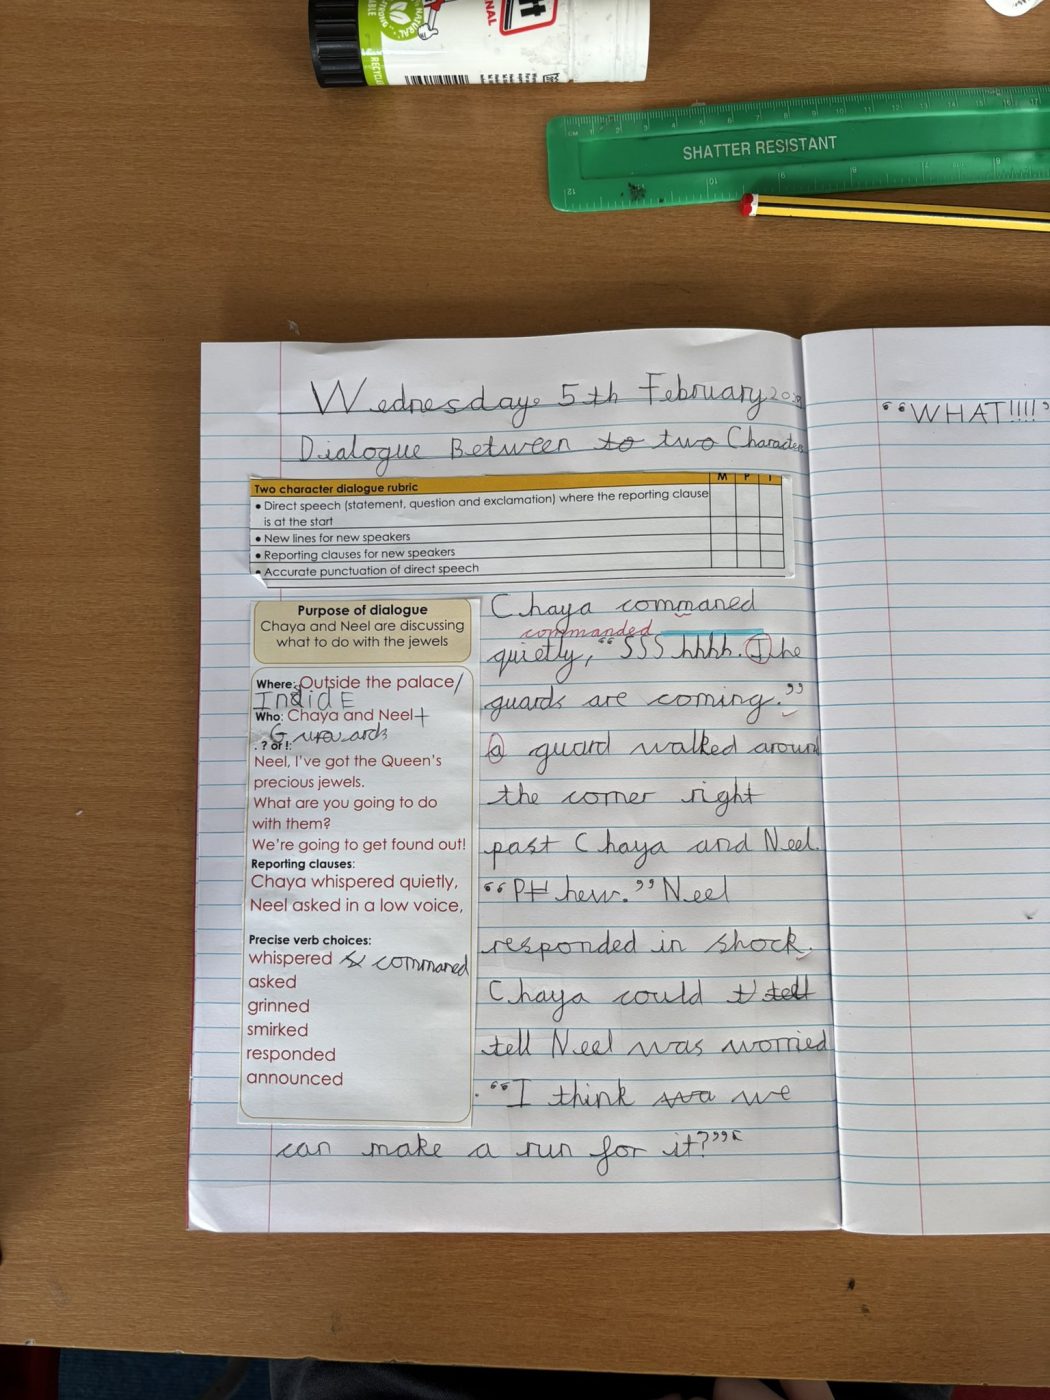 SHATTER RESISTANT
Wednesday 5th February
Dialogue Between to two Character
"WHAT!!!!"
Two character dialogue rubric M P I
• Direct speech (statement, question and exclamation) where the reporting clause
is at the start
• New lines for new speakers
• Reporting clauses for new speakers
• Accurate punctuation of direct speech
Purpose of dialogue
Chaya and Neel are discussing
what to do with the jewels
Where: Outside the palace/
IndidE
Who: Chaya and Neel +
Guards
. ? or !:
Neel, I've got the Queen's
precious jewels.
What are you going to do
with them?
We're going to get found out!
Reporting clauses:
Chaya whispered quietly,
Neel asked in a low voice,
Precise verb choices:
whispered & commaned
asked
grinned
smirked
responded
announced
Chaya commaned
commanded
quietly, "SSShhhh. The
guards are coming."
a guard walked around
the corner right
past Chaya and Neel.
"PHhew." Neel
responded in shock.
Chaya could t tell
tell Neel was worried
. "I think we
can make a run for it?"